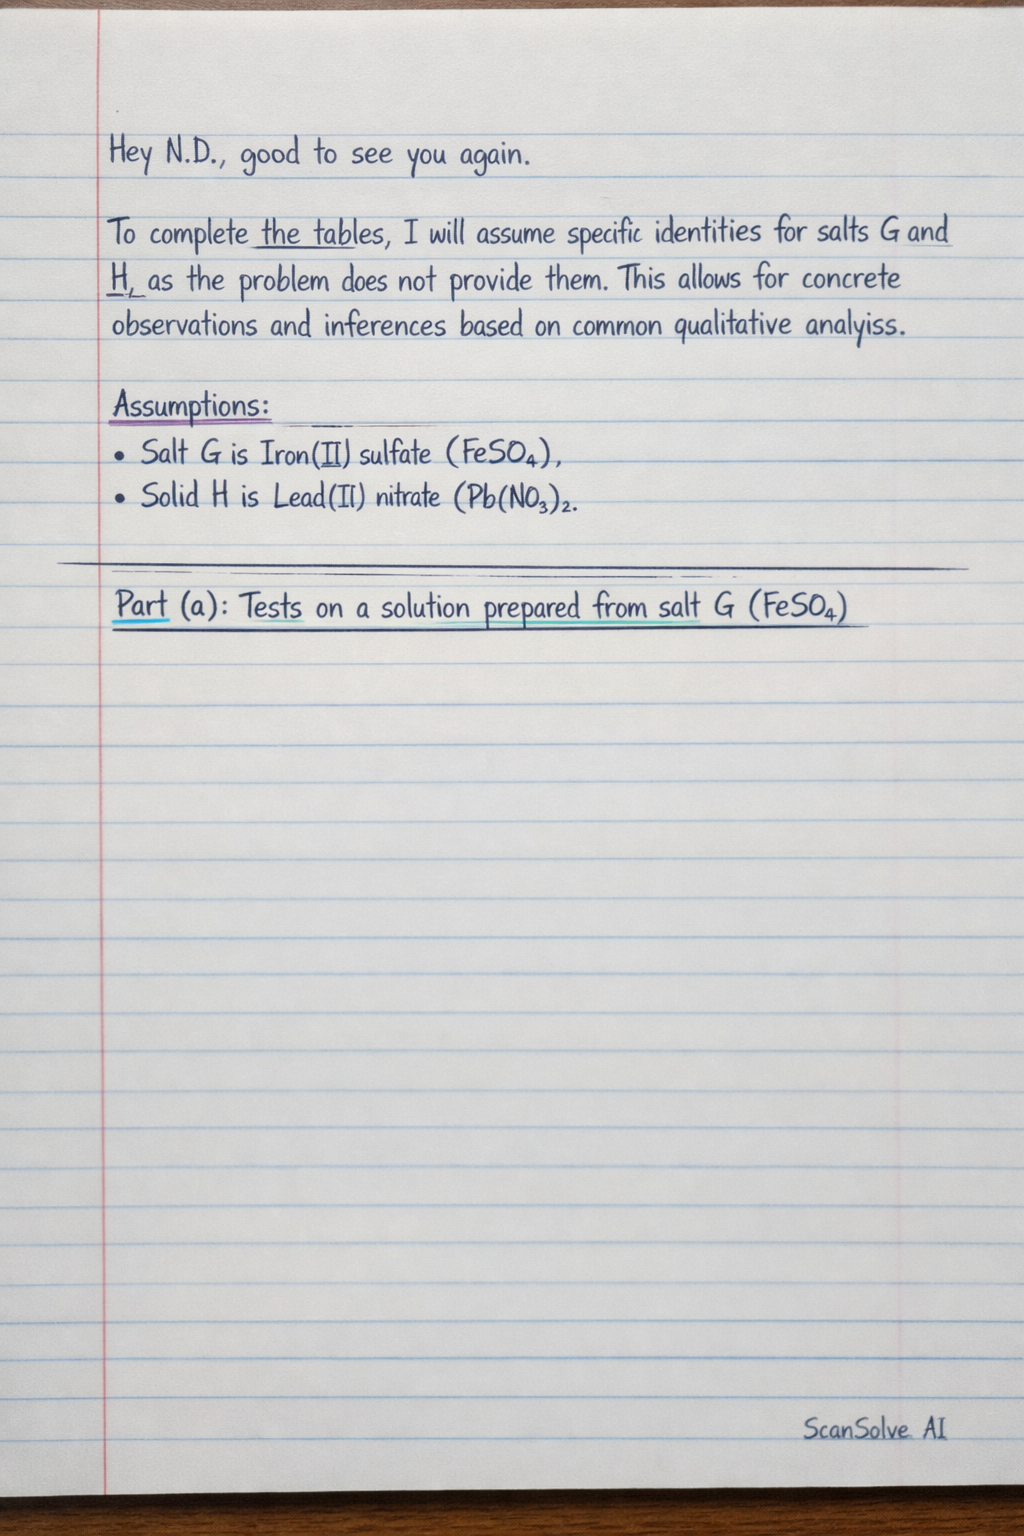 Hey N.D., good to see you again.
To complete the tables, I will assume specific identities for salts G and
H, as the problem does not provide them. This allows for concrete
observations and inferences based on common qualitative analyiss.
Assumptions:
• Salt G is Iron(II) sulfate (FeSO₄),
• Solid H is Lead(II) nitrate (Pb(NO₃)₂.
Part (a): Tests on a solution prepared from salt G (FeSO₄)
ScanSolve AI